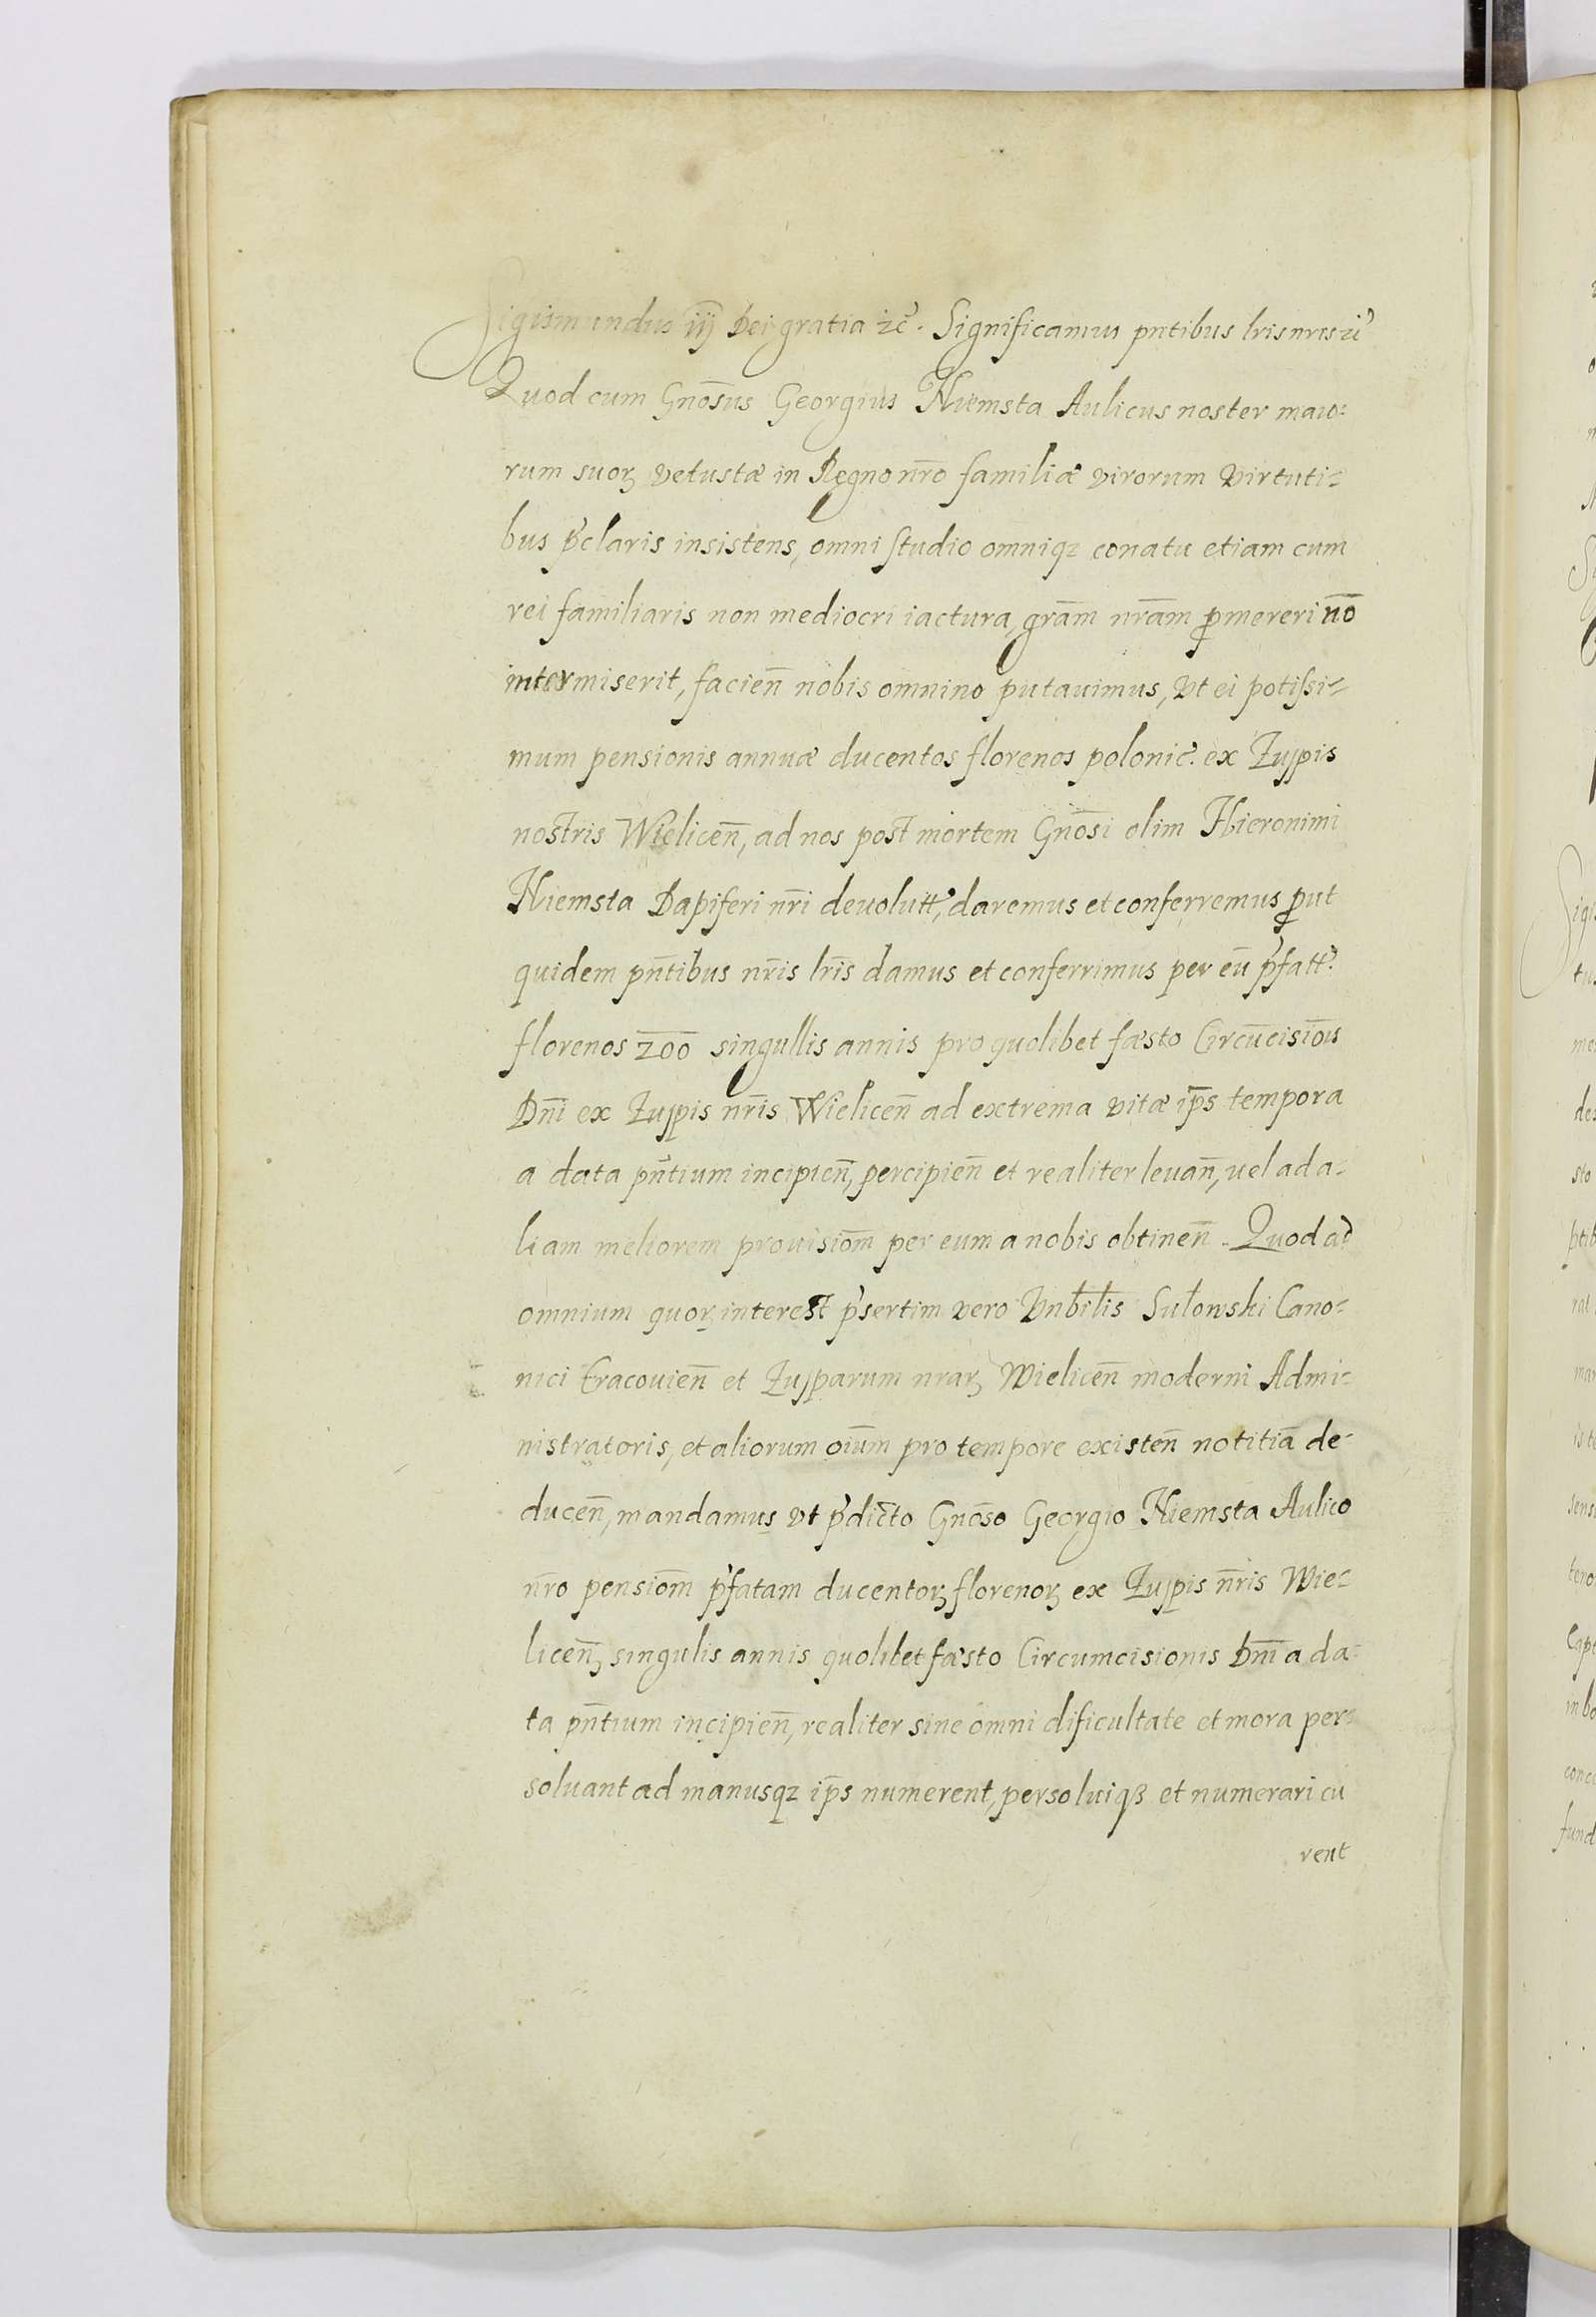 Sigismundus iij Dei gratia zc̃. Significamus pntibus lris nris zc̃
Quod cum Gnōsus Georgius Niemsta Aulicus noster maio=
rum suoꝝ vetustæ in Regno nr̄o familiæ virorum virtuti=
bus p̃claris insistens, omni studio omniqꝫ conatu etiam cum
rei familiaris non mediocri iactura, grām nrām ꝓmereri nō
intermiserit, facien̄ nobis omnino putauimus, vt ei potissi=
mum pensionis annuæ ducentos florenos polonic̃. ex Zuppis
nostris Wielicen̄, ad nos post mortem Gnōsi olim Hieronimi
Niemsta Dapiferi nr̄i deuolutt̃, daremus et conferremus ꝓut
quidem pn̄tibus nr̄is lr̄is damus et conferrimus per eū p̃fatt̃.
florenos 200 singullis annis pro quolibet fæsto Circūcisiōis
Dn̄i ex Zuppis nr̄is Wielicen̄ ad extrema vitæ ip̄s tempora
a data pn̄tium incipien̄, percipien̄ et realiter leuan̄, uel ad a=
liam meliorem prouisiōm per eum a nobis obtinen̄. Quod ad
omnium quoꝝ interest p̃sertim vero Vnb̄ilis Sułowski Cano=
nici Cracouien̄ et Zupparum nraꝝ Wielicen̄ moderni Admi=
nistratoris, et aliorum oīum pro tempore existen̄ notitiā de=
ducen̄, mandamus vt p̃dicto Gnōso Georgio Niemsta Aulico
nr̄o pensiōm p̃fatam ducentoꝝ florenoꝝ ex Zuppis nr̄is Wie=
licen̄, singulis annis quolibet fæsto Circumcisionis Dn̄i a da=
ta pn̄tium incipien̄, realiter sine omni dificultate et mora per=
soluant ad manusqꝫ ip̄s numerent, persoluiqꝫ et numerari cu
rent